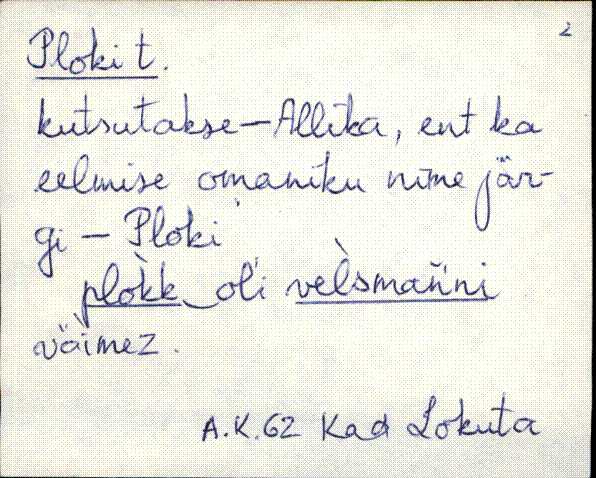 2
Ploki t.
kutsutakse – Allika, ent ka
eelmise omaniku nime jär-
gi – Ploki
plòkk oĺi vèlsmańni
väimez.
A.K.62 Kad Lokuta